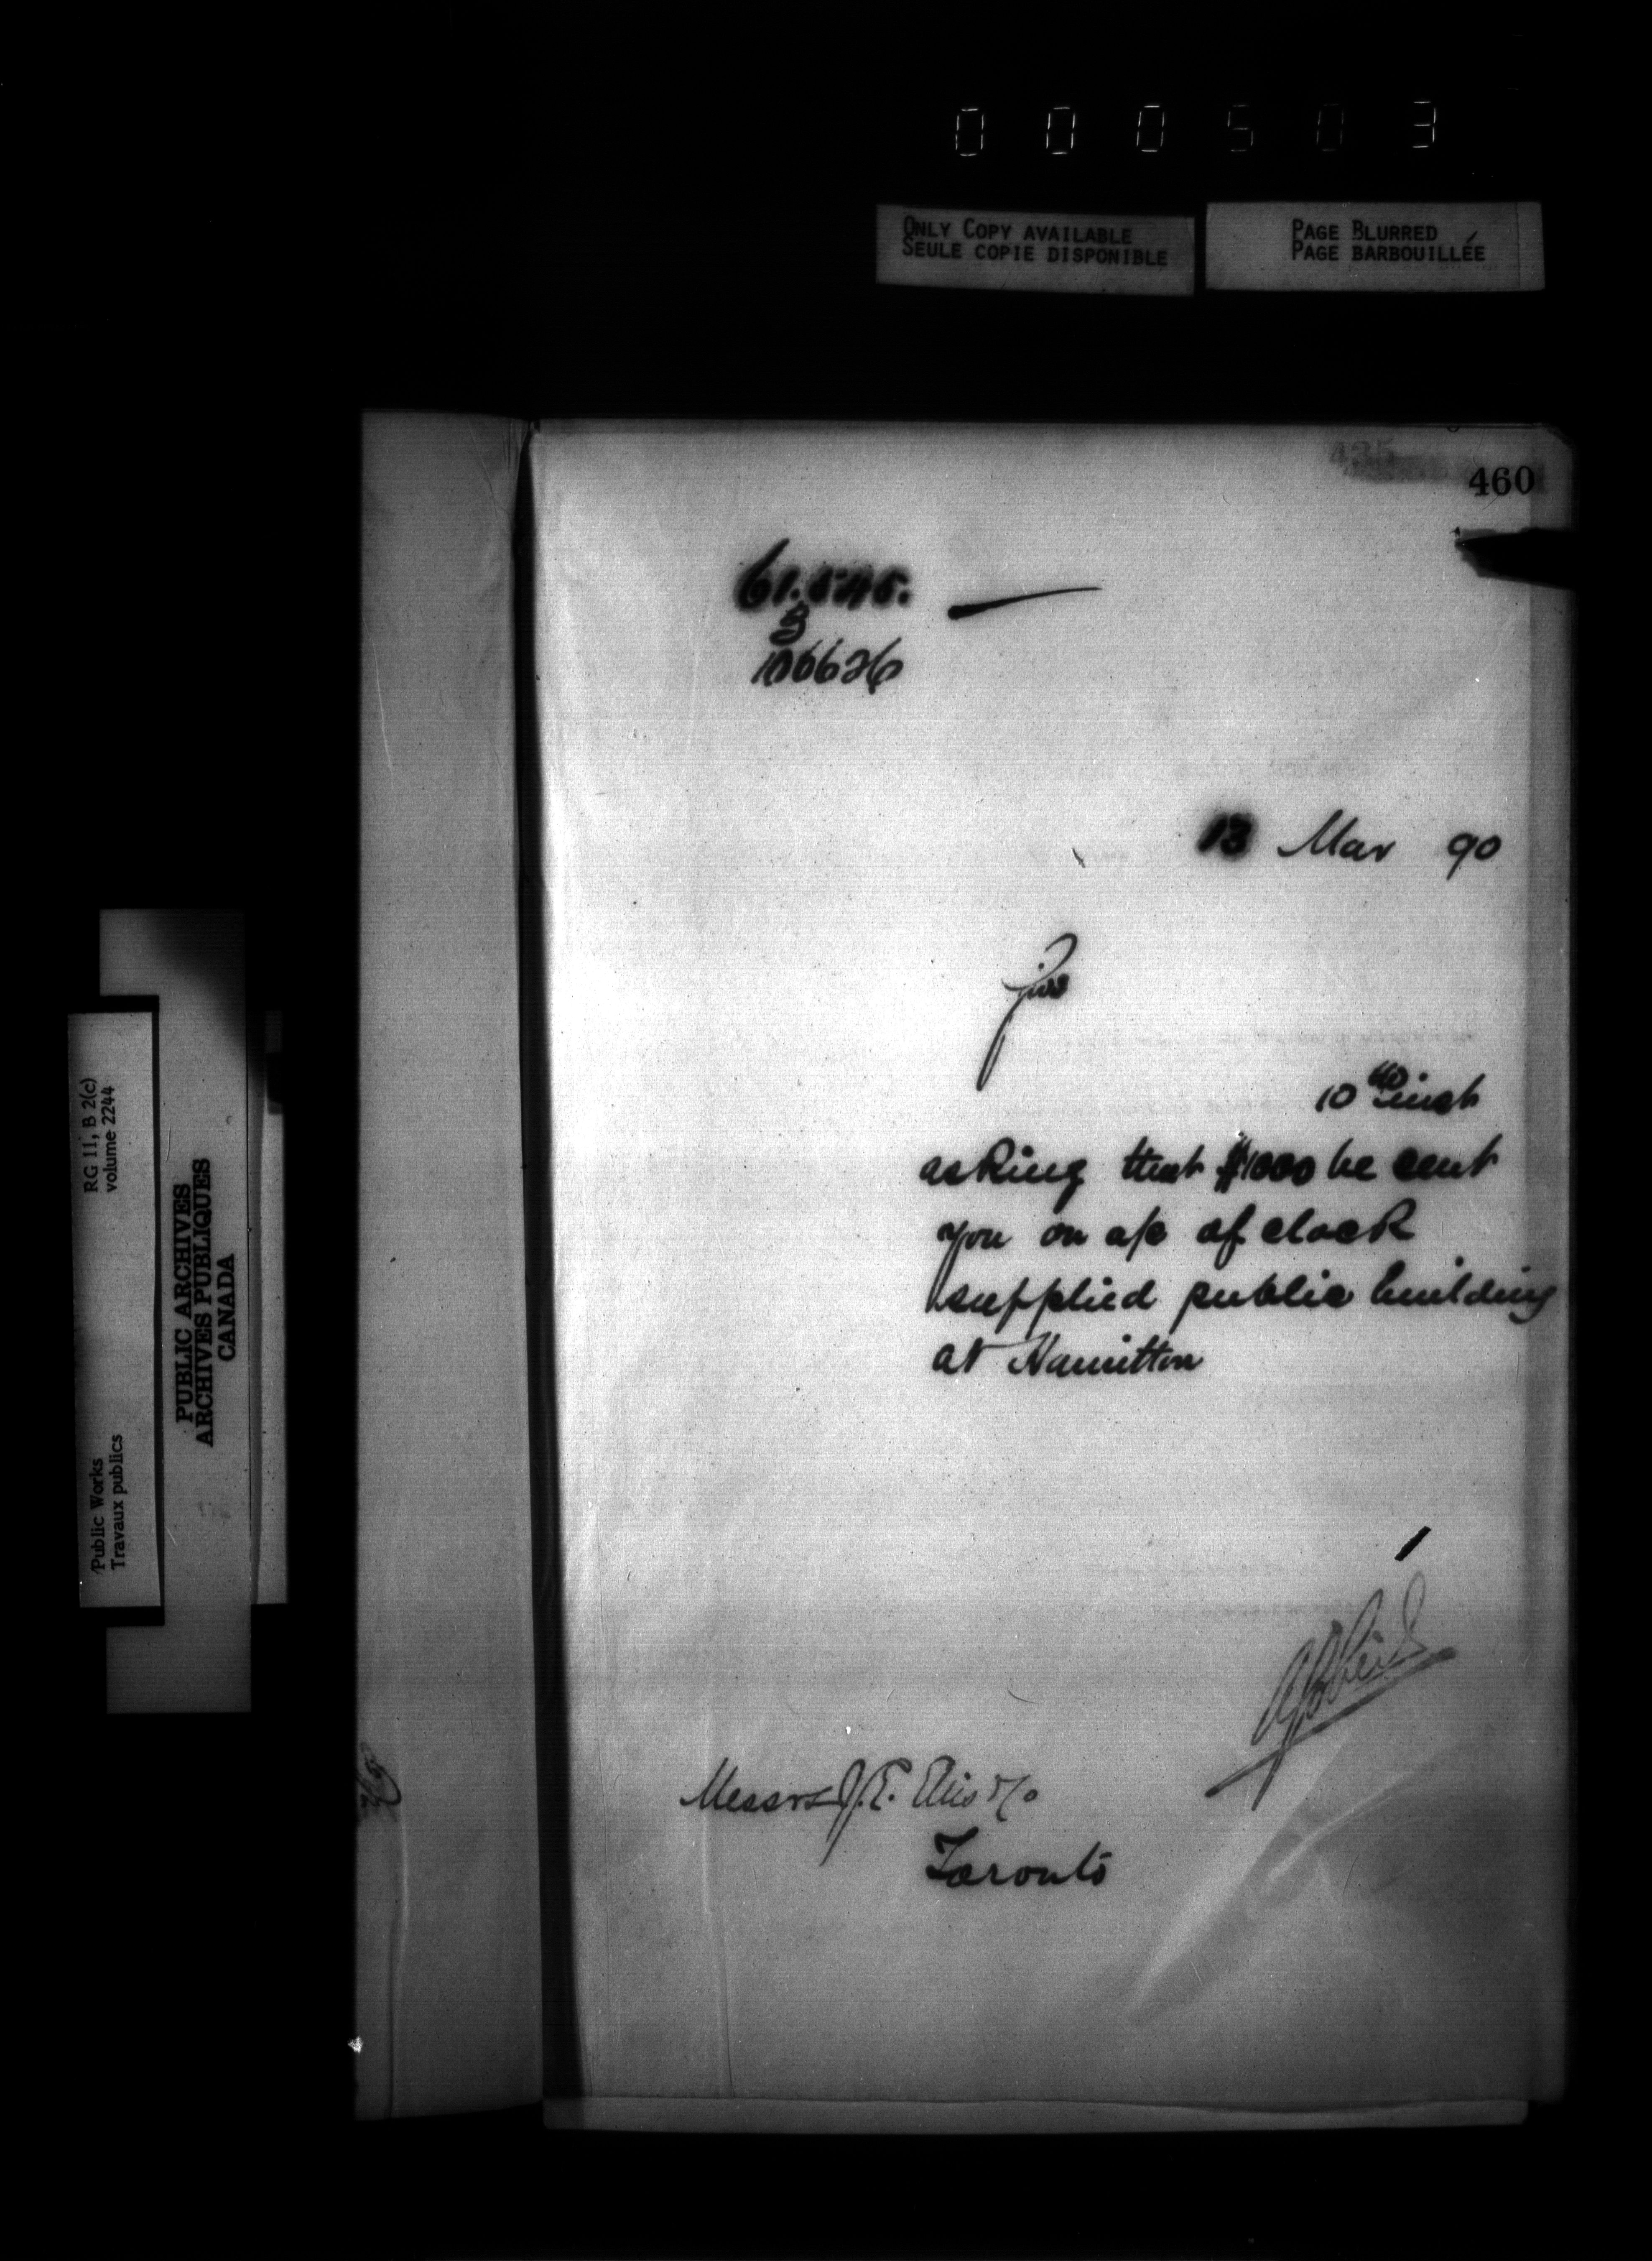 000503
ONLY COPY AVAILABLE
SEULE COPIE DISPONIBLE
PAGE BLURRED
PAGE BARBOUILLÉE
460
61.545.
3
106626
13 Mar 90
10th inst
asking that $1000 be sent
you on a/c of clock
supplied public building
at Hamilton
Messrs J.E. Ellis & Co
Toronto
RG 11, B 2(c)
volume 2244
Public Works
Travaux publics
PUBLIC ARCHIVES
ARCHIVES PUBLIQUES
CANADA